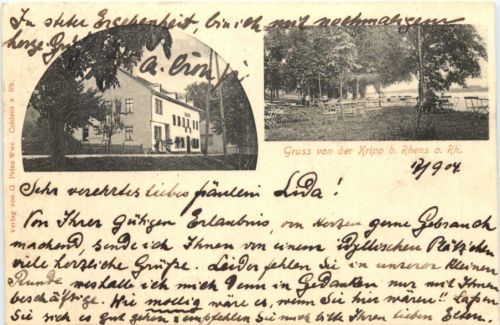 In steter Ergebenheit, bin ich mit nochmaligem
herzl. Gruß
Verlag von G. Prins Wwe. Coblenz a. Rh.
Gruss von der Kripp b. Rhens a. Rh.
17/9 04
Sehr verehrtes liebes Fräulein Lida!
Von Ihrer gütigen Erlaubnis, von Herzen gerne Gebrauch
machend, sende ich Ihnen von einem idyllischen Plätzchen
viele herzliche Grüße. Leider fehlen Sie in unserer kleinen
Runde weshalb ich mich denn in Gedanken nur mit Ihnen
beschäftige. Wie mollig wäre es, wenn Sie hier wären!! Lassen
Sie sich es gut gehen & empfehlen Sie mich bitte Ihren lieben Eltern.